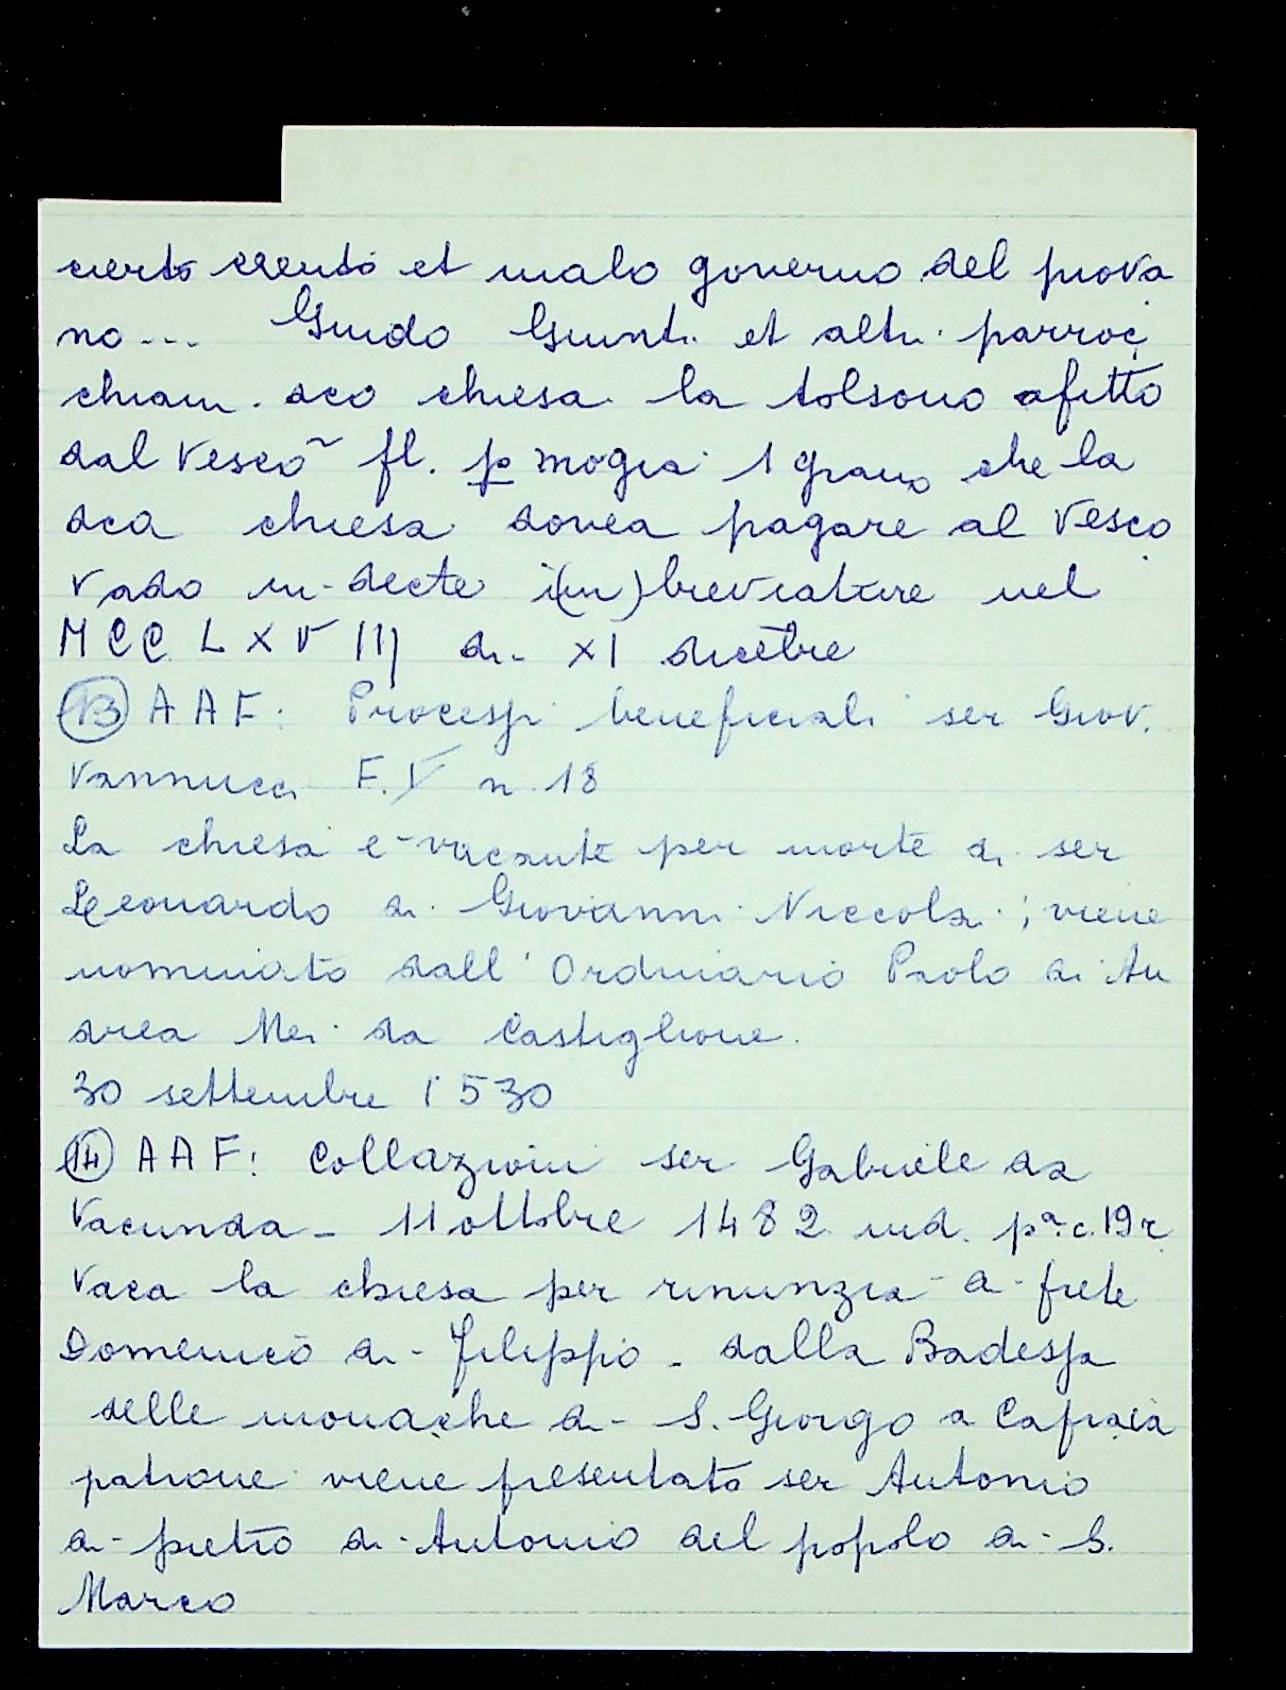 certo exento et malo governo del piova
no... Guido Giunti et altri parroc
chiani dco chiesa la tolsono afitto
dal Vesco~ fl. p mogia 1 grano che la
dca chiesa dovea pagare al Vesco
vado in decte i(m)breviature nel
MCCLXVIII di XI dicebre
(13) AAF: Processi beneficiali ser Giov.
Vannucci F.V n. 18
La chiesa è vacante per morte di ser
Leonardo di Giovanni Niccolai; viene
nominato dall'Ordinario Paolo di An
drea Mei da Castiglione.
30 settembre 1530
(14) AAF: Collazioni ser Gabriele da
Vacunda - 11 ottobre 1482 ind. pa. c. 19r
Vaca la chiesa per rinunzia di prete
Domenico di Filippo - dalla Badessa
delle monache di S. Giorgo a Capraia
patrone viene presentato ser Antonio
di pietro di Antonio del popolo di S.
Marco